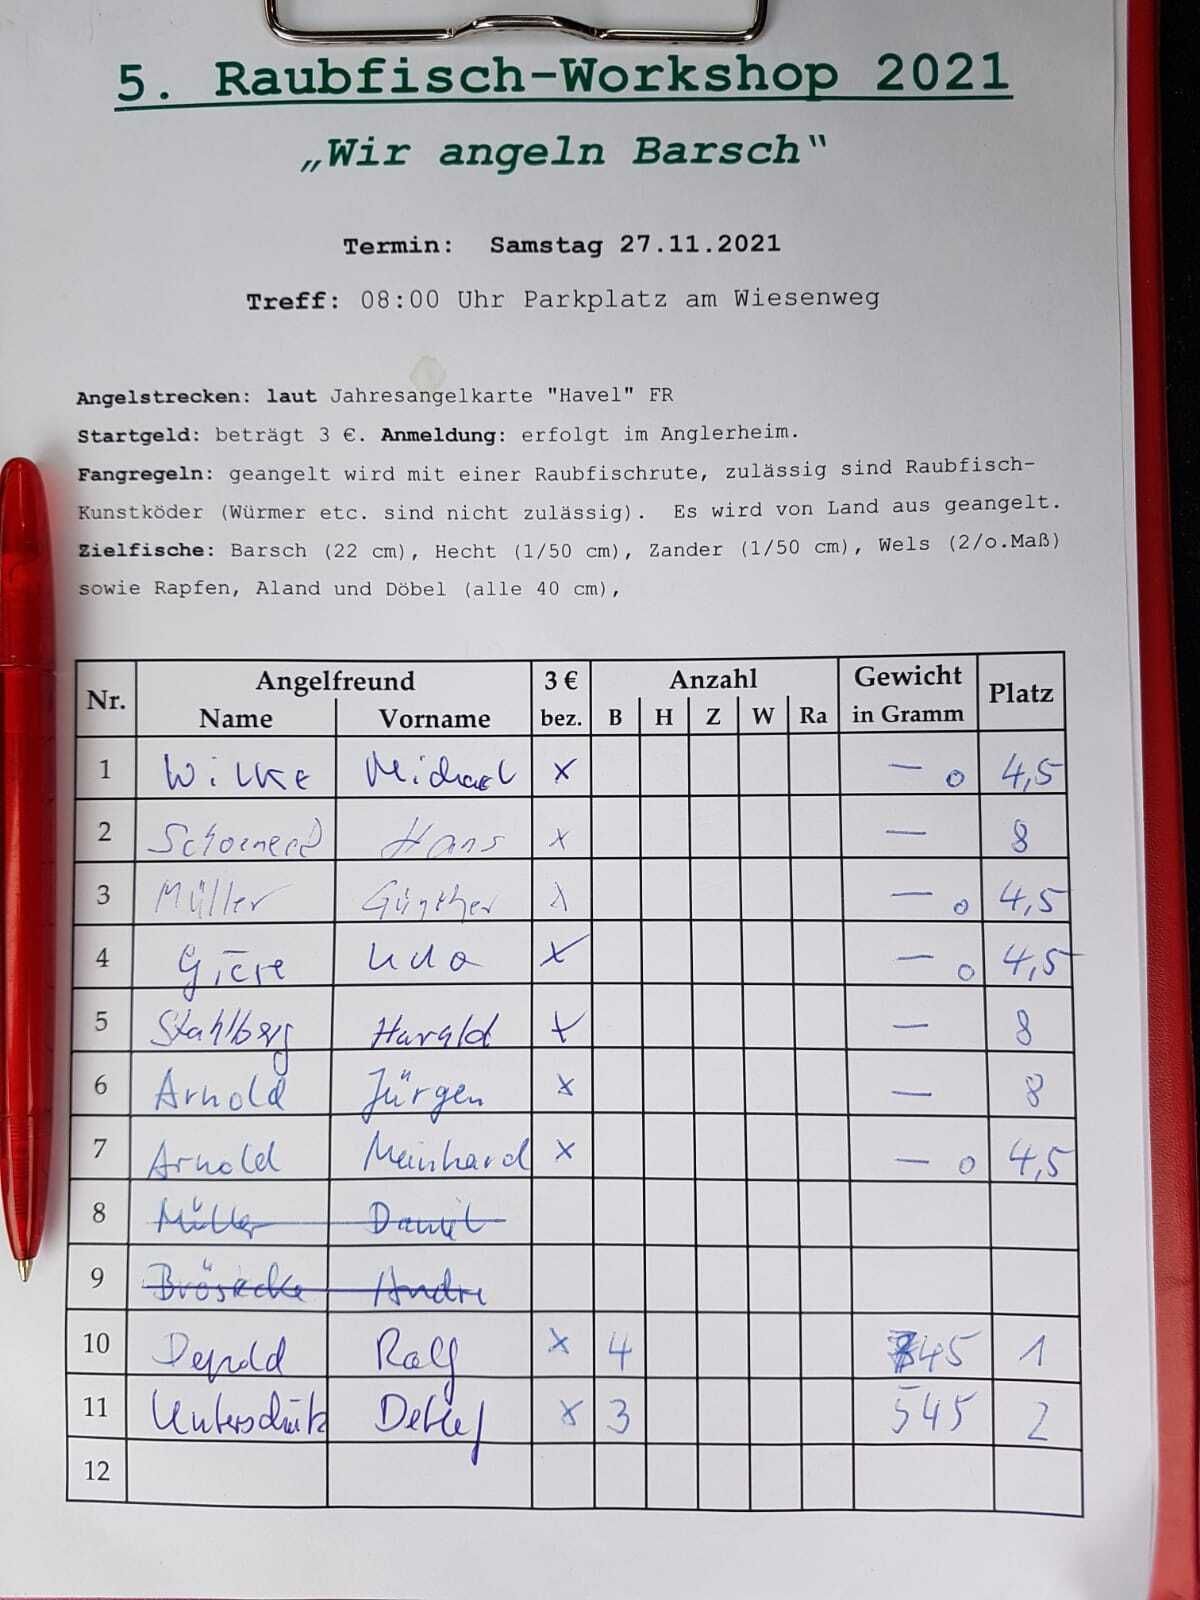 5. Raubfisch-Workshop 2021
„Wir angeln Barsch“
Termin: Samstag 27.11.2021
Treff: 08:00 Uhr Parkplatz am Wiesenweg
Angelstrecken: laut Jahresangelkarte "Havel" FR
Startgeld: beträgt 3 €. Anmeldung: erfolgt im Anglerheim.
Fangregeln: geangelt wird mit einer Raubfischrute, zulässig sind Raubfisch-
Kunstköder (Würmer etc. sind nicht zulässig). Es wird von Land aus geangelt.
Zielfische: Barsch (22 cm), Hecht (1/50 cm), Zander (1/50 cm), Wels (2/o.Maß)
sowie Rapfen, Aland und Döbel (alle 40 cm),
Nr. Angelfreund 3 € Anzahl Gewicht Platz
Name Vorname bez. B H Z W Ra in Gramm
1 Wilke Michael x — o 4,5
2 Hans x — 8
3 Müller Günther x — o 4,5
4 Giere Udo x — o 4,5
5 Stahlberg Harald x — 8
6 Arnold Jürgen x — 8
7 Arnold Meinhard x — o 4,5
8 Müller Daniel
9 Andre
10 Depold Ralf x 4 1
11 Unterschütz Detlef x 3 545 2
12